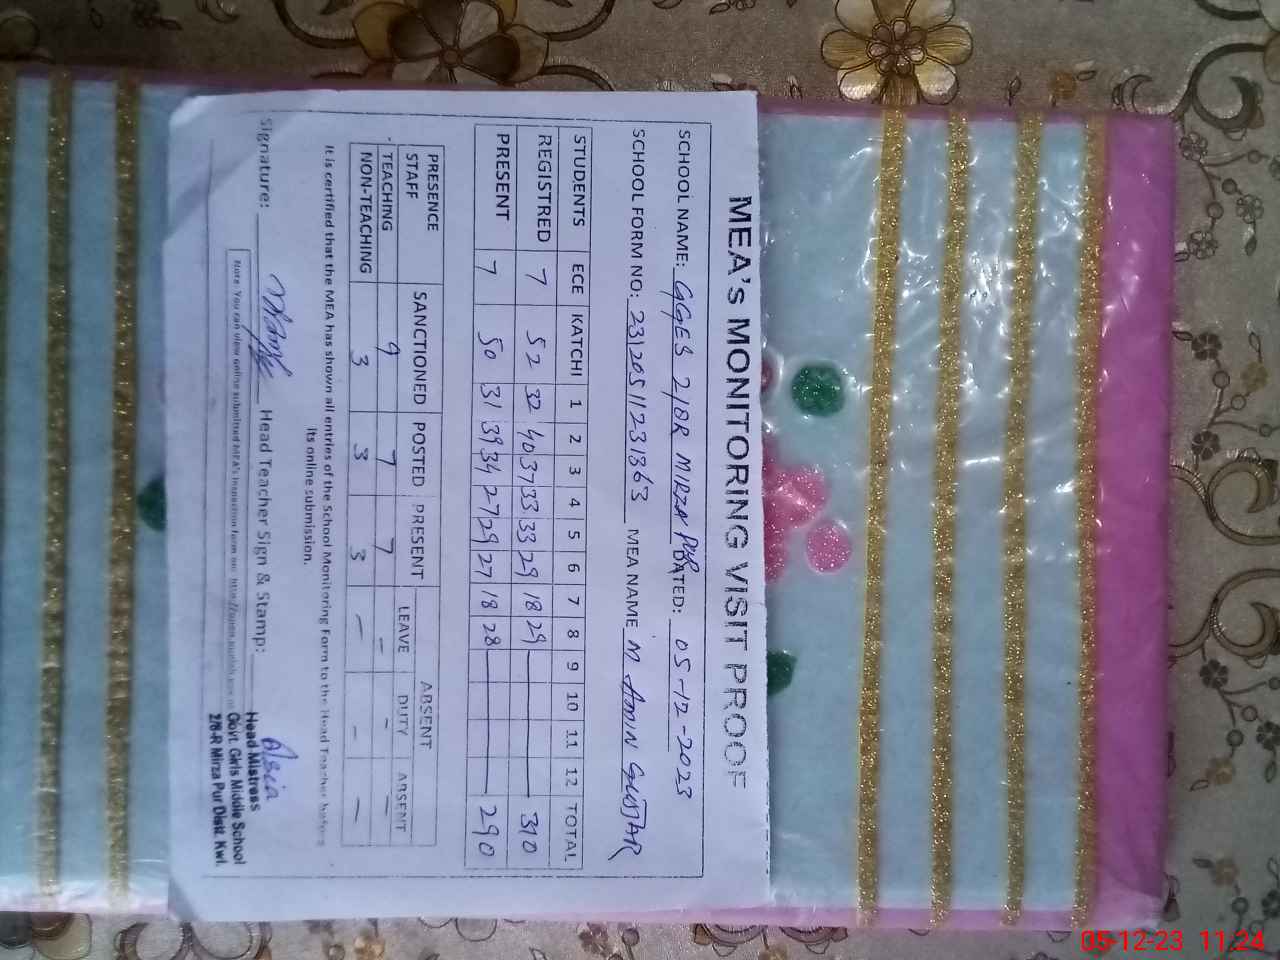 MEA's MONITORING VISIT PROOF
SCHOOL NAME: GGES 2/8R MIRZA PUR DATED: 05-12-2023
SCHOOL FORM NO: 231205112313 63 MEA NAME M AMIN GUJJAR
STUDENTS ECE KATCHI 1 2 3 4 5 6 7 8 9 10 11 12 TOTAL
REGISTRED 7 52 32 40 37 33 33 29 18 29 310
PRESENT 7 50 31 39 34 27 29 27 18 28 290
PRESENCE SANCTIONED POSTED PRESENT ABSENT
STAFF LEAVE DUTY ABSENT
TEACHING 9 7 7 - - -
NON-TEACHING 3 3 3 - - -
It is certified that the MEA has shown all entries of the School Monitoring Form to the Head Teacher before
its online submission.
Signature: Head Teacher Sign & Stamp: Asia
Head Mistress
Govt. Girls Middle School
2/8-R Mirza Pur Distt. Kwl.
Note: You can view online submitted MEA's Inspection form on:
05-12-23 11:24